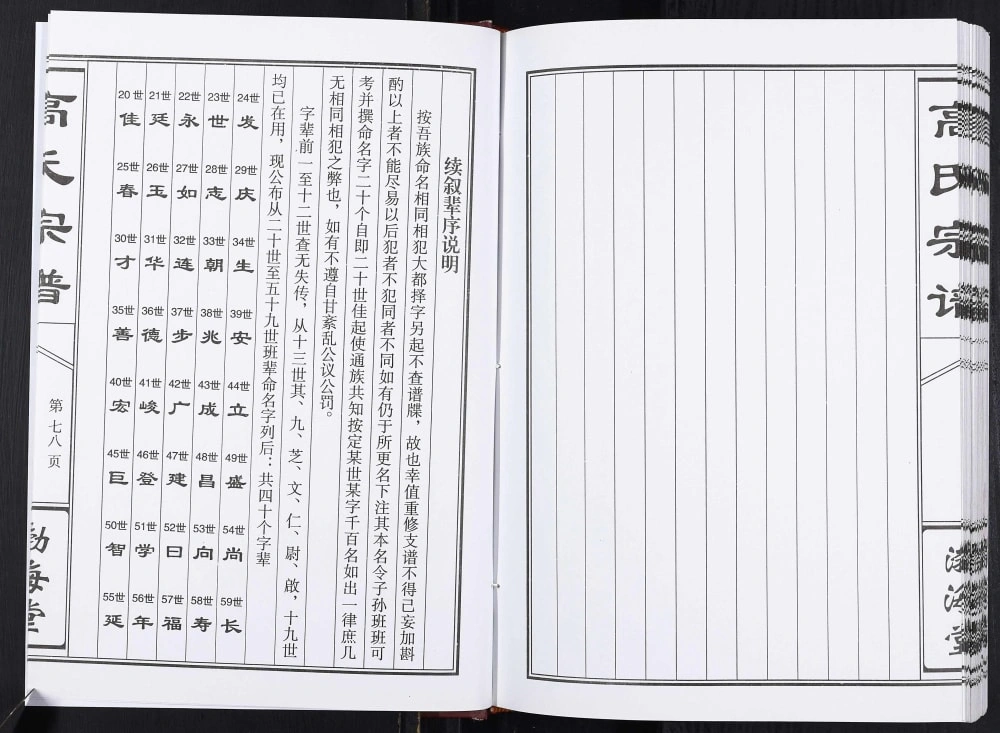 续叙辈序说明
按吾族命名相同相犯大都择字另起不查谱牒，故也幸值重修支谱不得已妄加斟
酌以上者不能尽易以后犯者不犯同者不同如有仍于所更名下注其本名令子孙班班可
考并撰命名字二十个自即二十世佳起使通族共知按定某世某字千百名如出一律庶几
无相同相犯之弊也，如有不遵自甘紊乱公议公罚。
字辈前一至十二世查无失传，从十三世其、九、芝、文、仁、尉、啟，十九世
均已在用，现公布从二十世至五十九世班辈命名字列后：共四十个字辈
24世 发 29世 庆 34世 生 39世 安 44世 立 49世 盛 54世 尚 59世 长
23世 世 28世 志 33世 朝 38世 兆 43世 成 48世 昌 53世 向 58世 寿
22世 永 27世 如 32世 连 37世 步 42世 广 47世 建 52世 日 57世 福
21世 廷 26世 玉 31世 华 36世 德 41世 峻 46世 登 51世 学 56世 年
20世 佳 25世 春 30世 才 35世 善 40世 宏 45世 巨 50世 智 55世 延
高氏宗普
第七八页
勃海堂
高氏宗谱
渤海堂